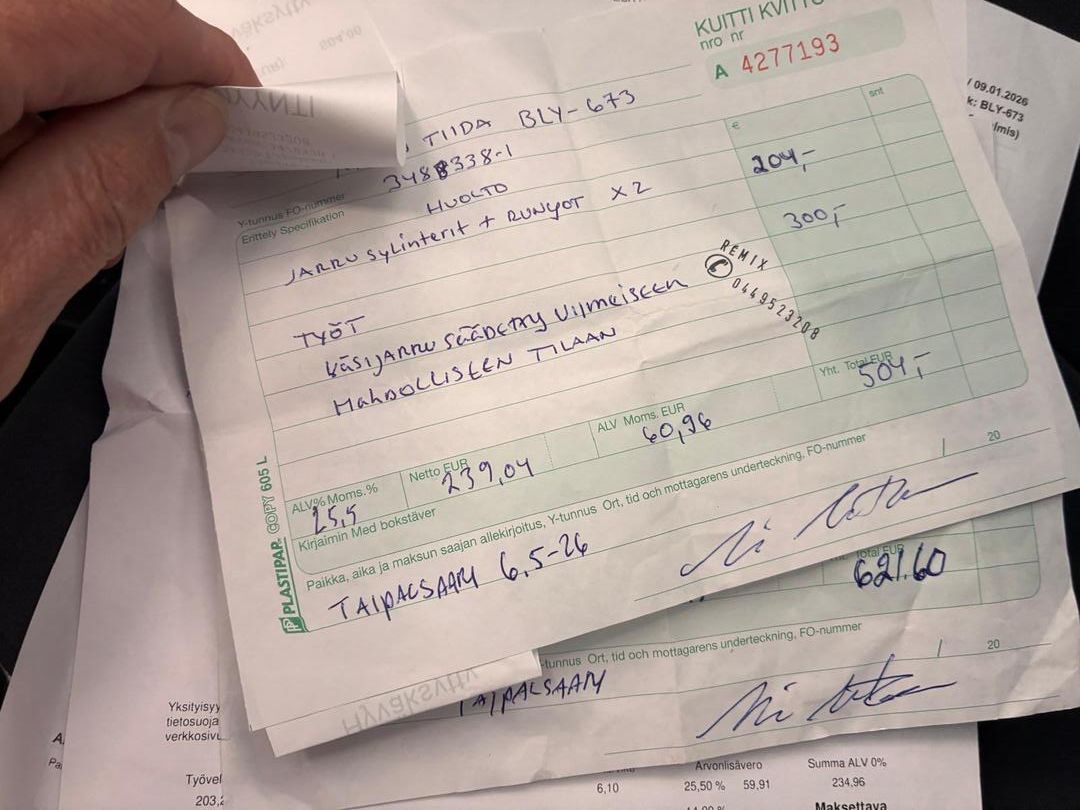 KUITTI KVITTO
nro nr
A 4277193
TIIDA BLY-673
3488338-1
Y-tunnus FO-nummer
HUOLTO
Erittely Specifikation
€
snt
JARRU SYLINTERIT + RUNGOT X2
204,-
300,-
TYÖT
KÄSIJARRU SÄÄDETTY VIIMEISEEN
MAHDOLLISEEN TILAAN
REMIX
0449523208
Yht. Total EUR
504,-
ALV% Moms.%
25,5
Netto EUR
239,04
ALV Moms. EUR
60,96
Kirjaimin Med bokstäver
Paikka, aika ja maksun saajan allekirjoitus, Y-tunnus Ort, tid och mottagarens underteckning, FO-nummer
/
20
TAIPALSAARI 6,5-26
PLASTIPAP. COPY 605 L
/ 09.01.2026
k: BLY-673
Total EUR
621.60
-tunnus Ort, tid och mottagarens underteckning, FO-nummer
/
20
TAIPALSAARI
Hyväksytty
Yksityisyy
tietosuoja
verkkosivu
Työvel
203,2
6,10
Arvonlisävero
25,50 % 59,91
Summa ALV 0%
234,96
Maksettava